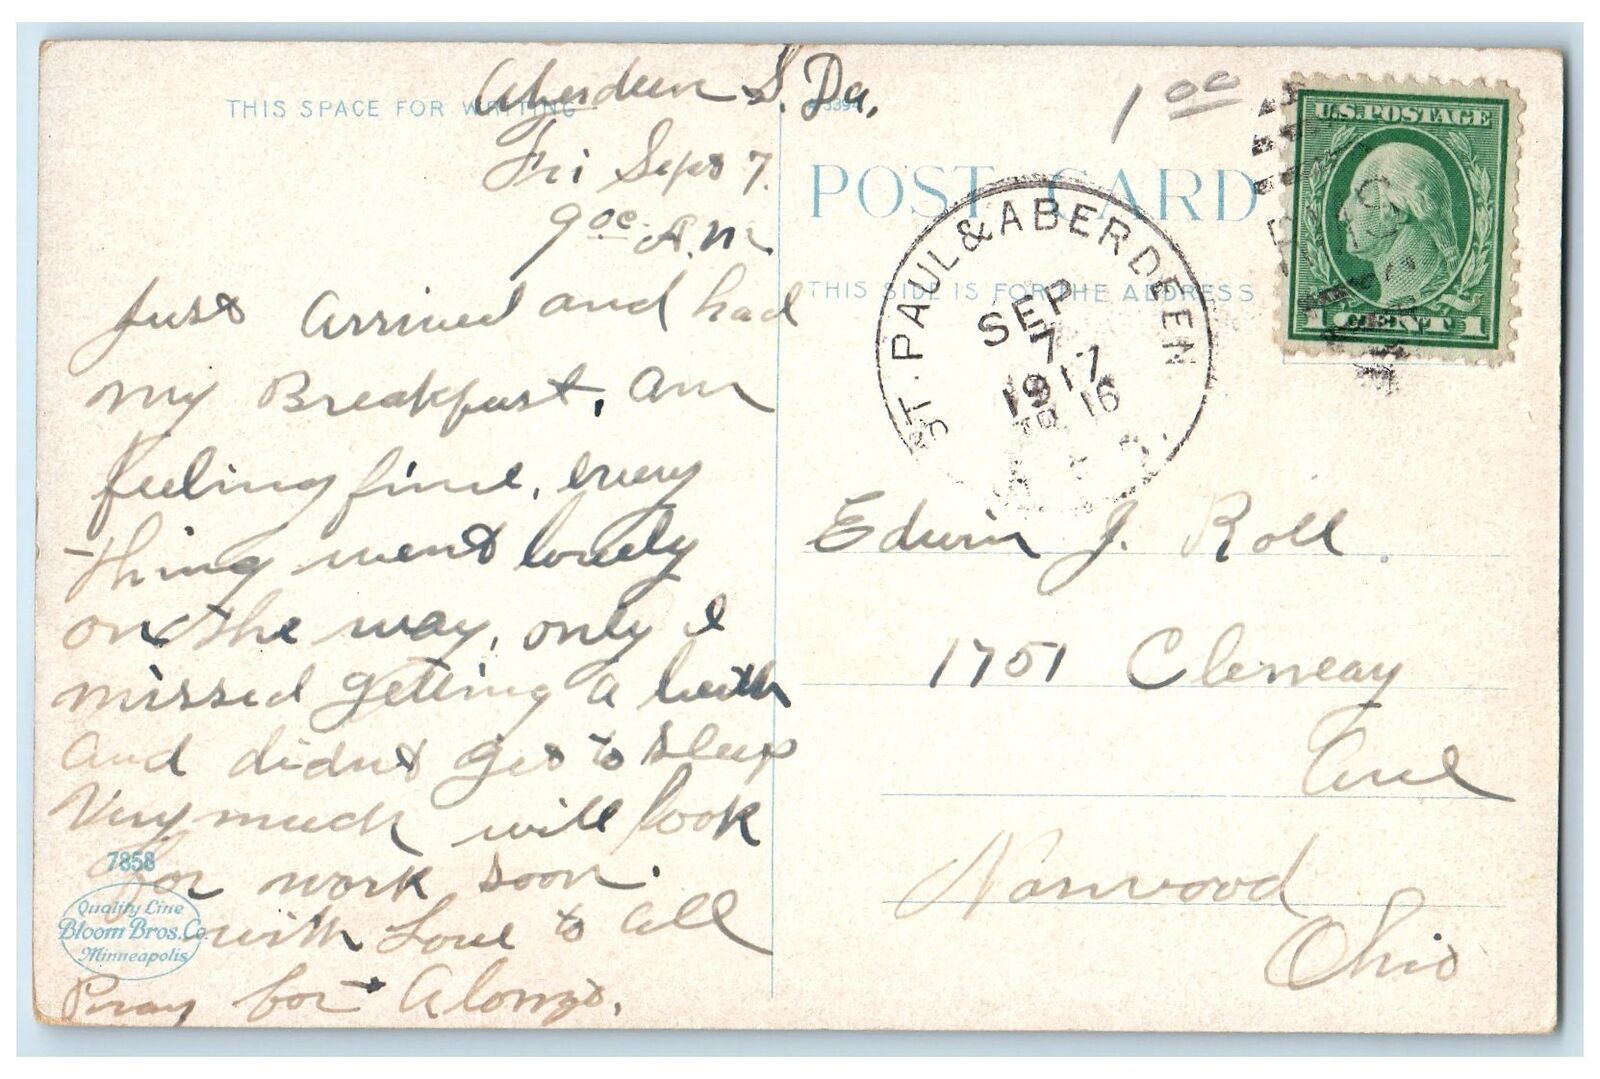 Aberdeen S. Da.
THIS SPACE FOR WRITING
Fri Sept 7.
9oc A.M
Just Arrived and had
my Breakfast, am
feeling fine, every
thing went lovely
on the way, only I
missed getting a berth
and didnt get to sleep
Very much will look
for work soon.
with Love to all
Pray for Alonzo.
7858
Quality Line
Bloom Bros. Co.
Minneapolis
1 00
POST CARD
THIS SIDE IS FOR THE ADDRESS
ST. PAUL & ABERDEEN
SEP
7
1917
TR 16
U.S. POSTAGE
1 CENT 1
Edwin J. Roll.
1751 Cleneay
Ave
Norwood
Ohio